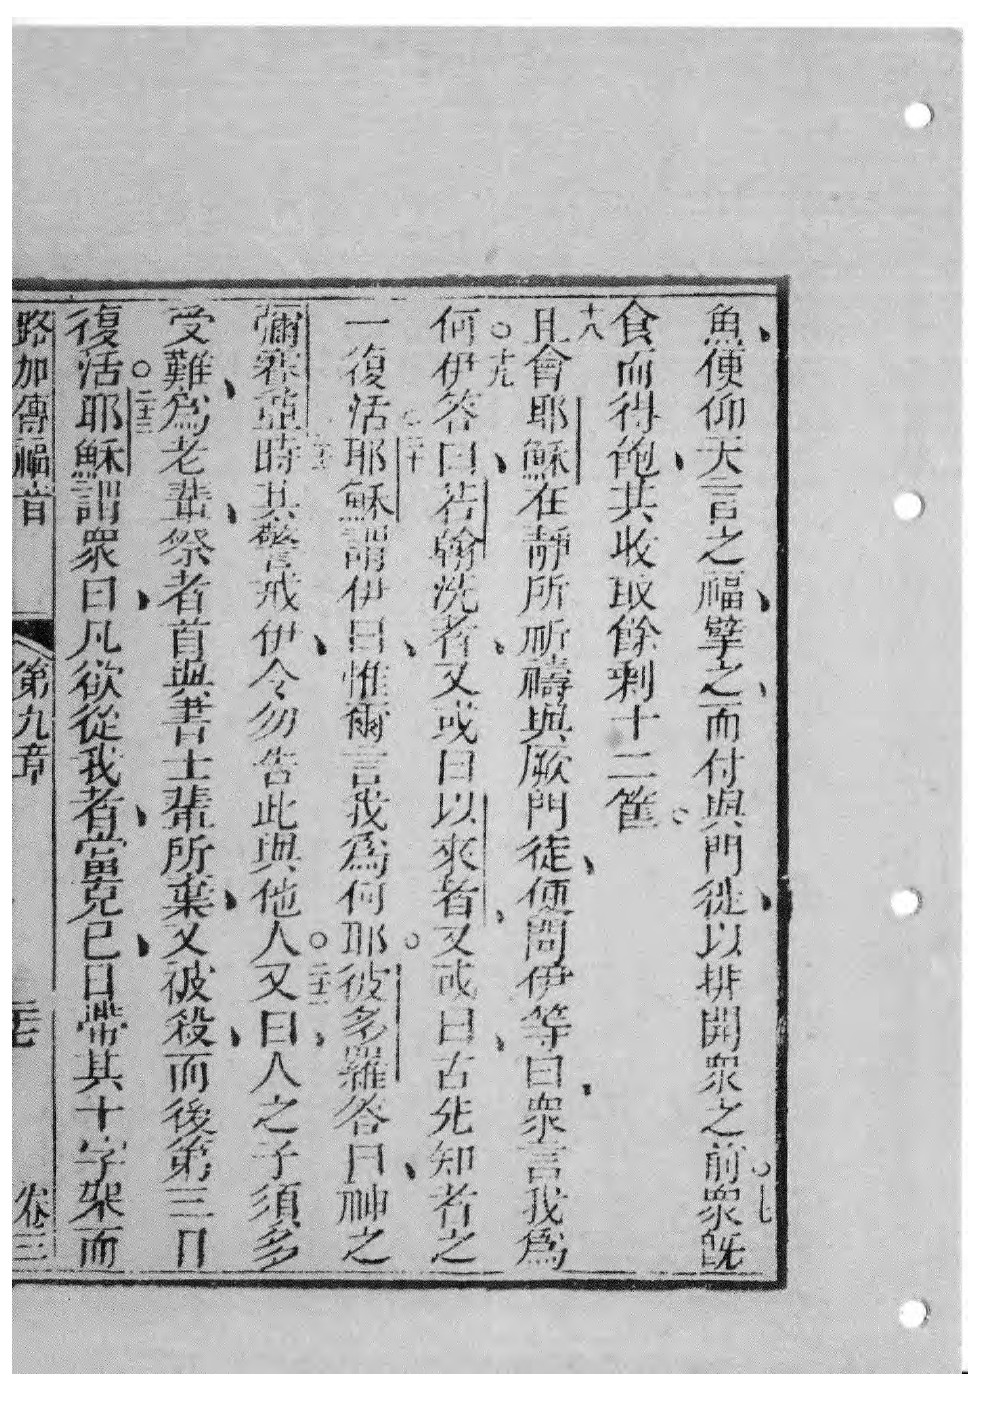 魚便仰天言之福擘之而付與門徒以排開衆之前○十七衆既
食而得飽共收取餘剩十二筐
十八且會耶穌在靜所祈禱與厥門徒便問伊等曰衆言我爲
何○十九伊答曰若翰洗者又或曰以來者又或曰古先知者之
一復活○二十耶穌謂伊曰惟爾言我爲何耶○彼多羅答曰神之
彌賽亞○二十一時其警戒伊令勿告此與他人○二十二又曰人之子須多
受難爲老輩祭者首與書士輩所棄又被殺而後第三日
復活○二十三耶穌謂衆曰凡欲從我者當克己日帶其十字架而
路加傳福音 第九章 卷三